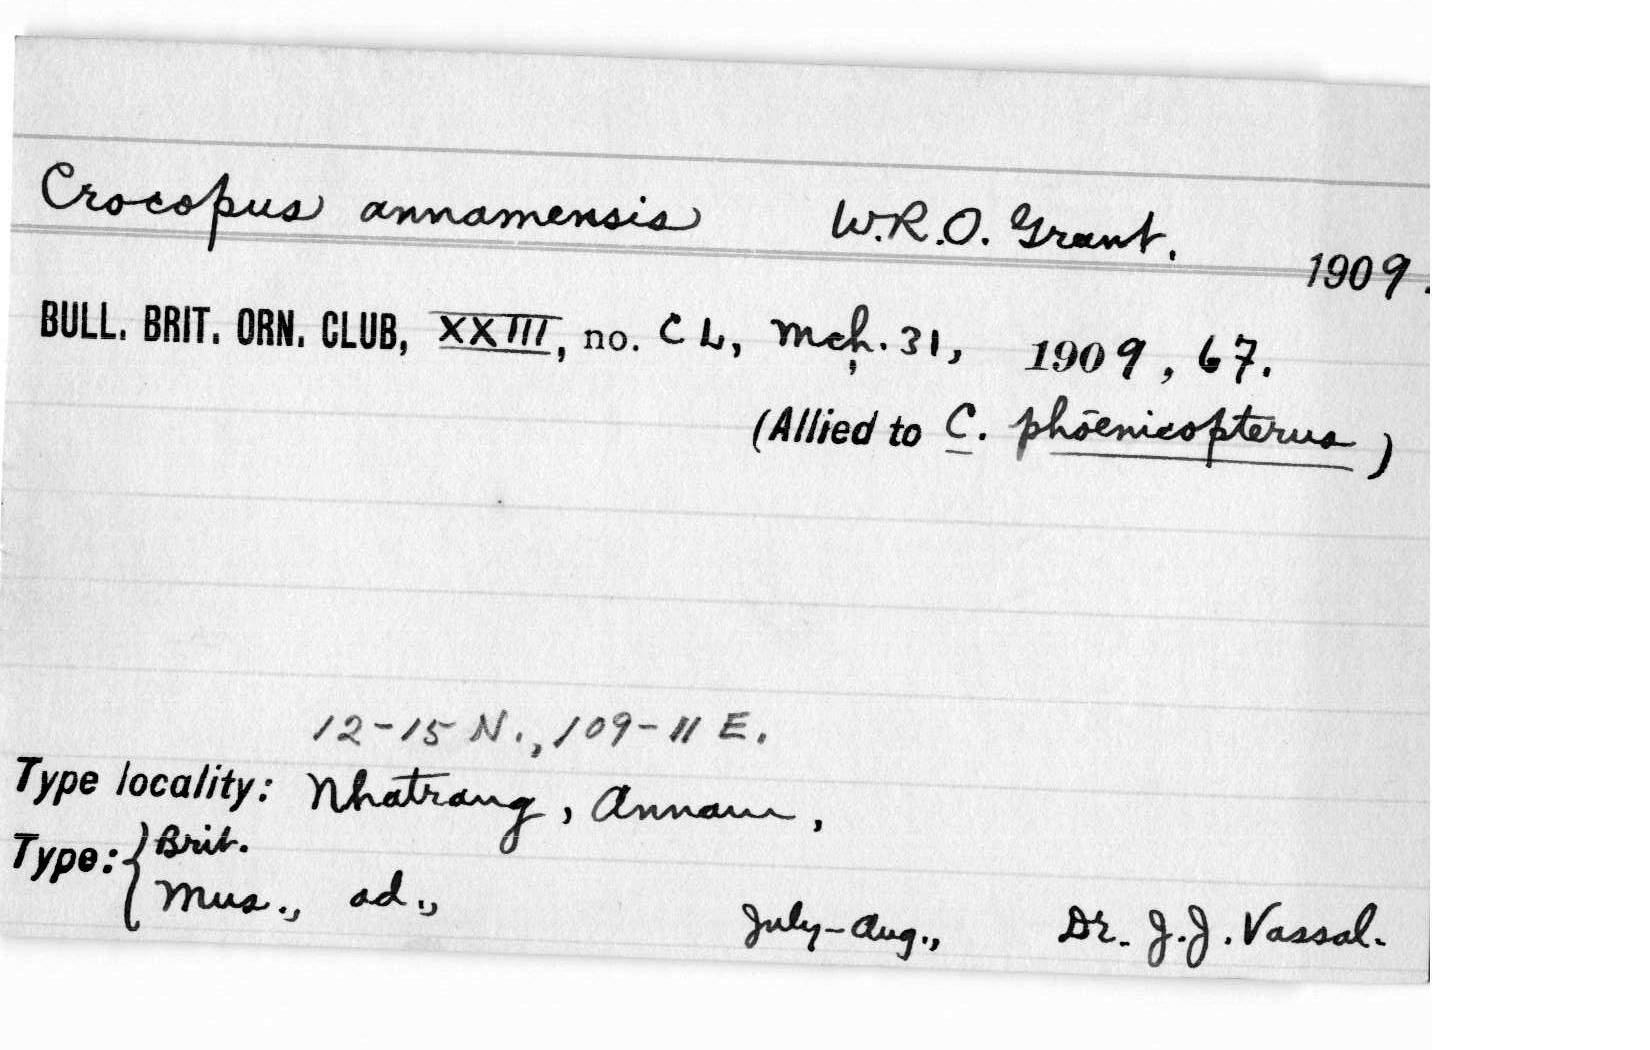 Crocopus annamensis W.R.O. Grant. 1909.
BULL. BRIT. ORN. CLUB, XXIII, no. CL, Mch. 31, 1909, 67.
(Allied to C. phoenicopterus)
12-15 N., 109-11 E.
Type locality: Nhatrang, Annam,
Type: { Brit.
Mus., ad., July-Aug., Dr. J.J. Vassal.